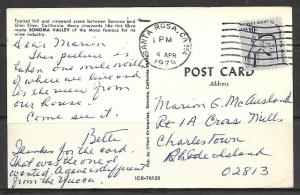 Typical hill and vineyard scene between Sonoma and
Glen Ellen, California. Many vineyards like this have
made SONOMA VALLEY of the Moon famous for its
wine industry.
SANTA ROSA, CA
PM
4 APR
1979
Dear Marion
This picture is
taken one mile north
of where we lived and
is the view from
our house.
Come see it.
Bette
Thanks for the card.
That was the one I
wanted. Again different
from the
POST CARD
Address
Marion G. McAusland
Rt 1A Cross Mills
Charlestown
Rhode Island
02813
ICS-76123